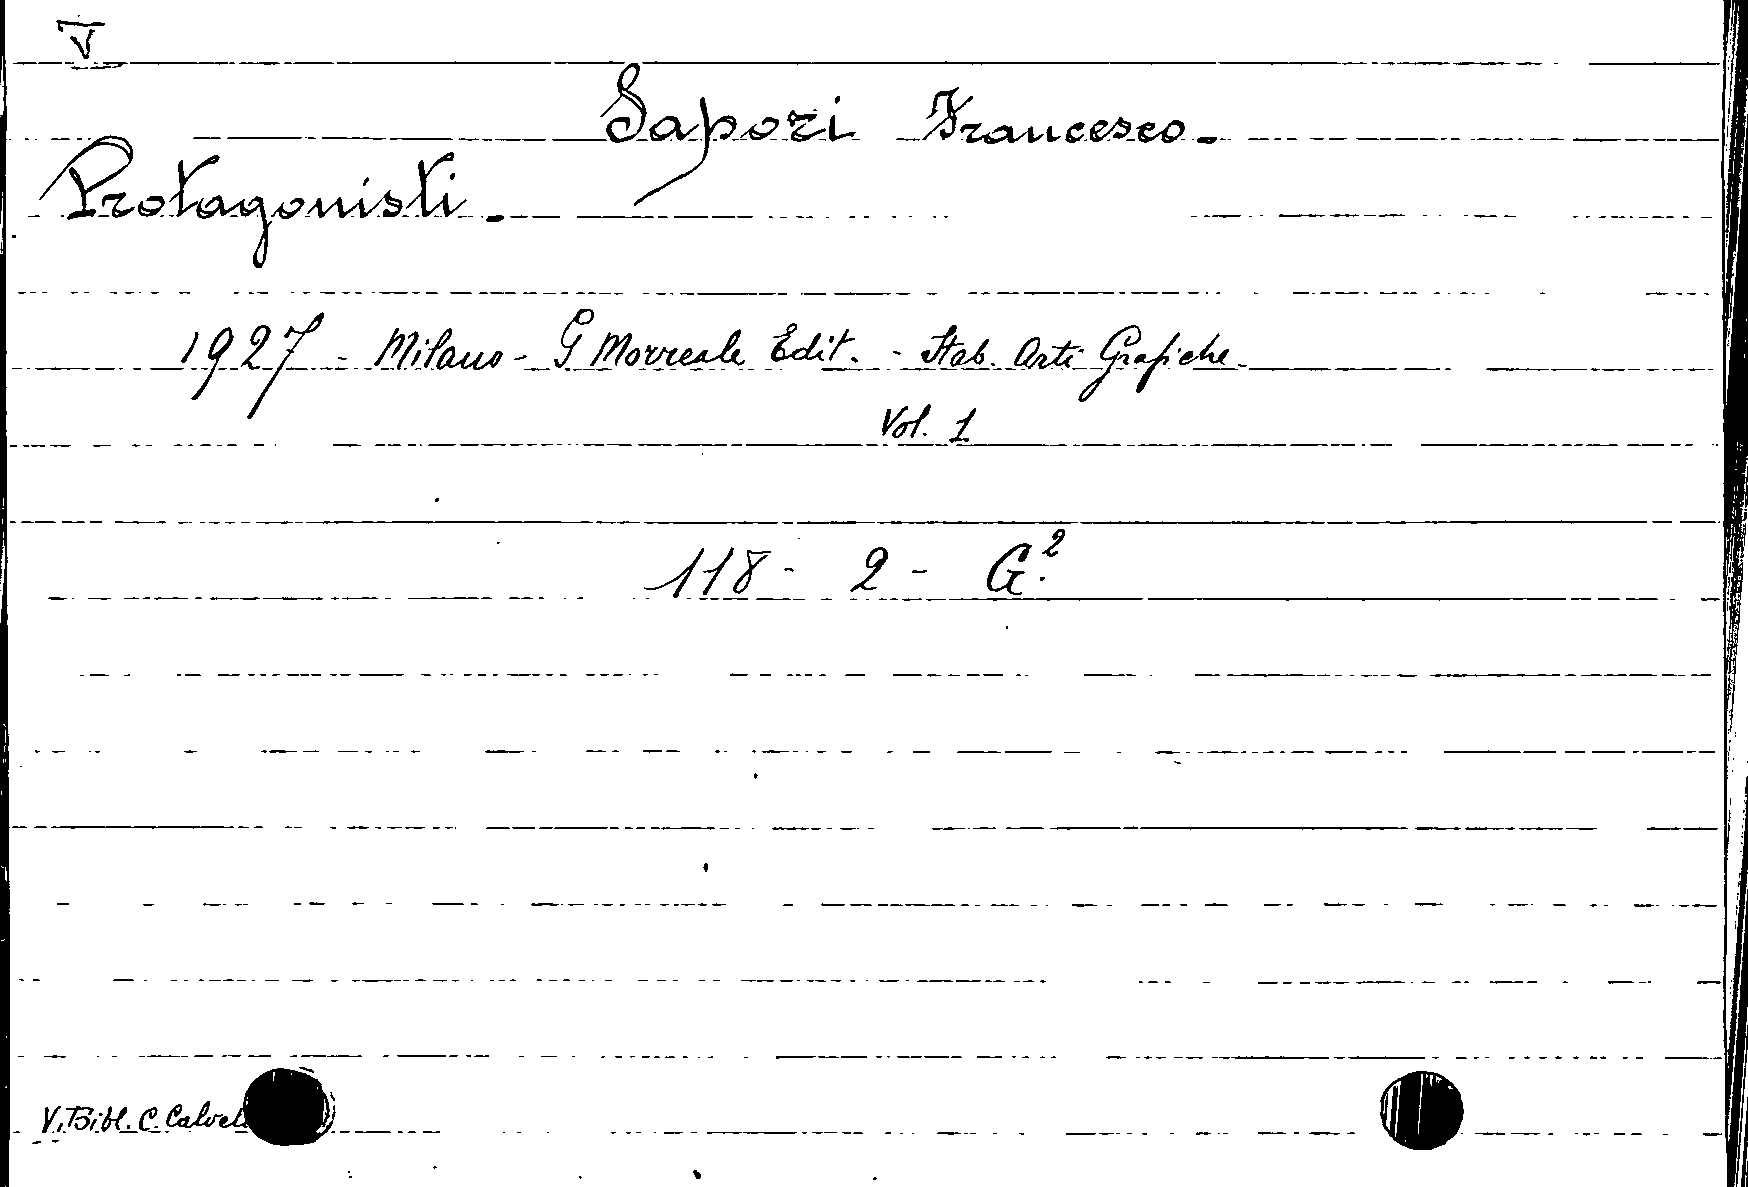 V
Sapori Francesco.
Protagonisti.
1927 - Milano - G Morreale Edit. - Stab. Arti Grafiche
Vol. 1
118 - 2 - G.²
V. Bibl. C. Calvel